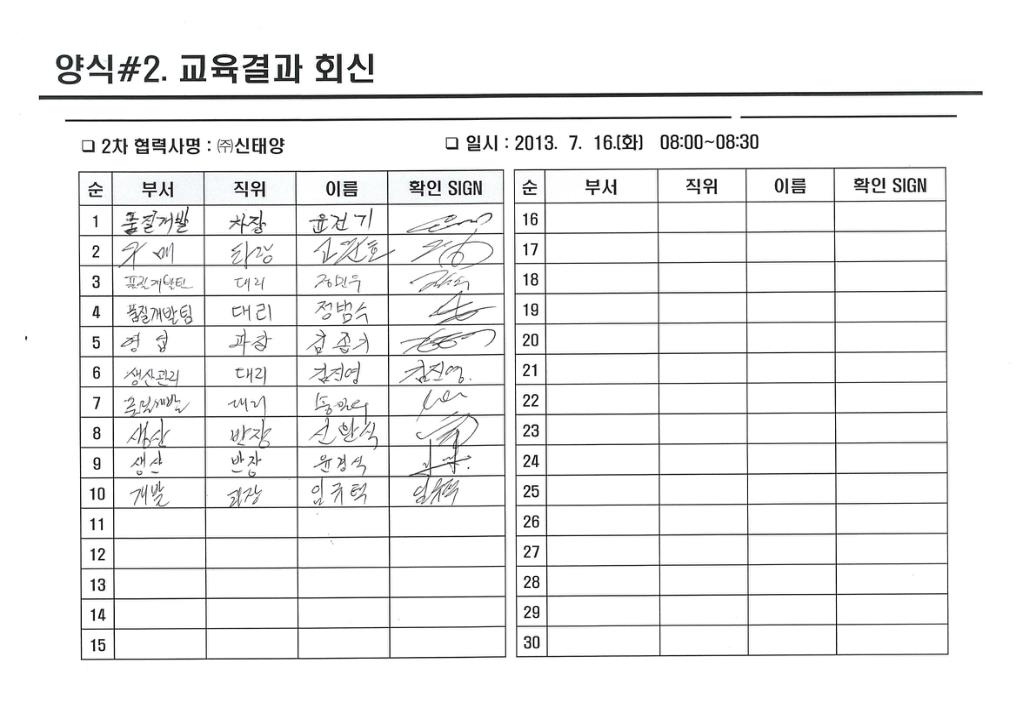 양식#2. 교육결과 회신
❏ 2차 협력사명 : ㈜신태양
❏ 일시 : 2013. 7. 16.(화) 08:00~08:30
순 부서 직위 이름 확인 SIGN
1 품질개발 차장 윤건기
2 구매
3 품질개발팀 대리
4 품질개발팀 대리 정범수
5 영업 과장
6 생산관리 대리 김진영 김진영.
7 대리
8 생산 반장 신완식
9 생산 반장 윤경식
10 개발 과장 임규택 임규택
11
12
13
14
15
순 부서 직위 이름 확인 SIGN
16
17
18
19
20
21
22
23
24
25
26
27
28
29
30